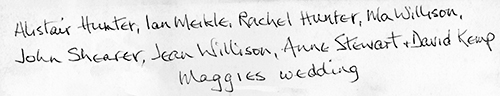 Alistair Hunter, Ian Meikle, Rachel Hunter, Ma Willison,
John Shearer, Jean Willison, Anne Stewart + David Kemp
Maggies wedding